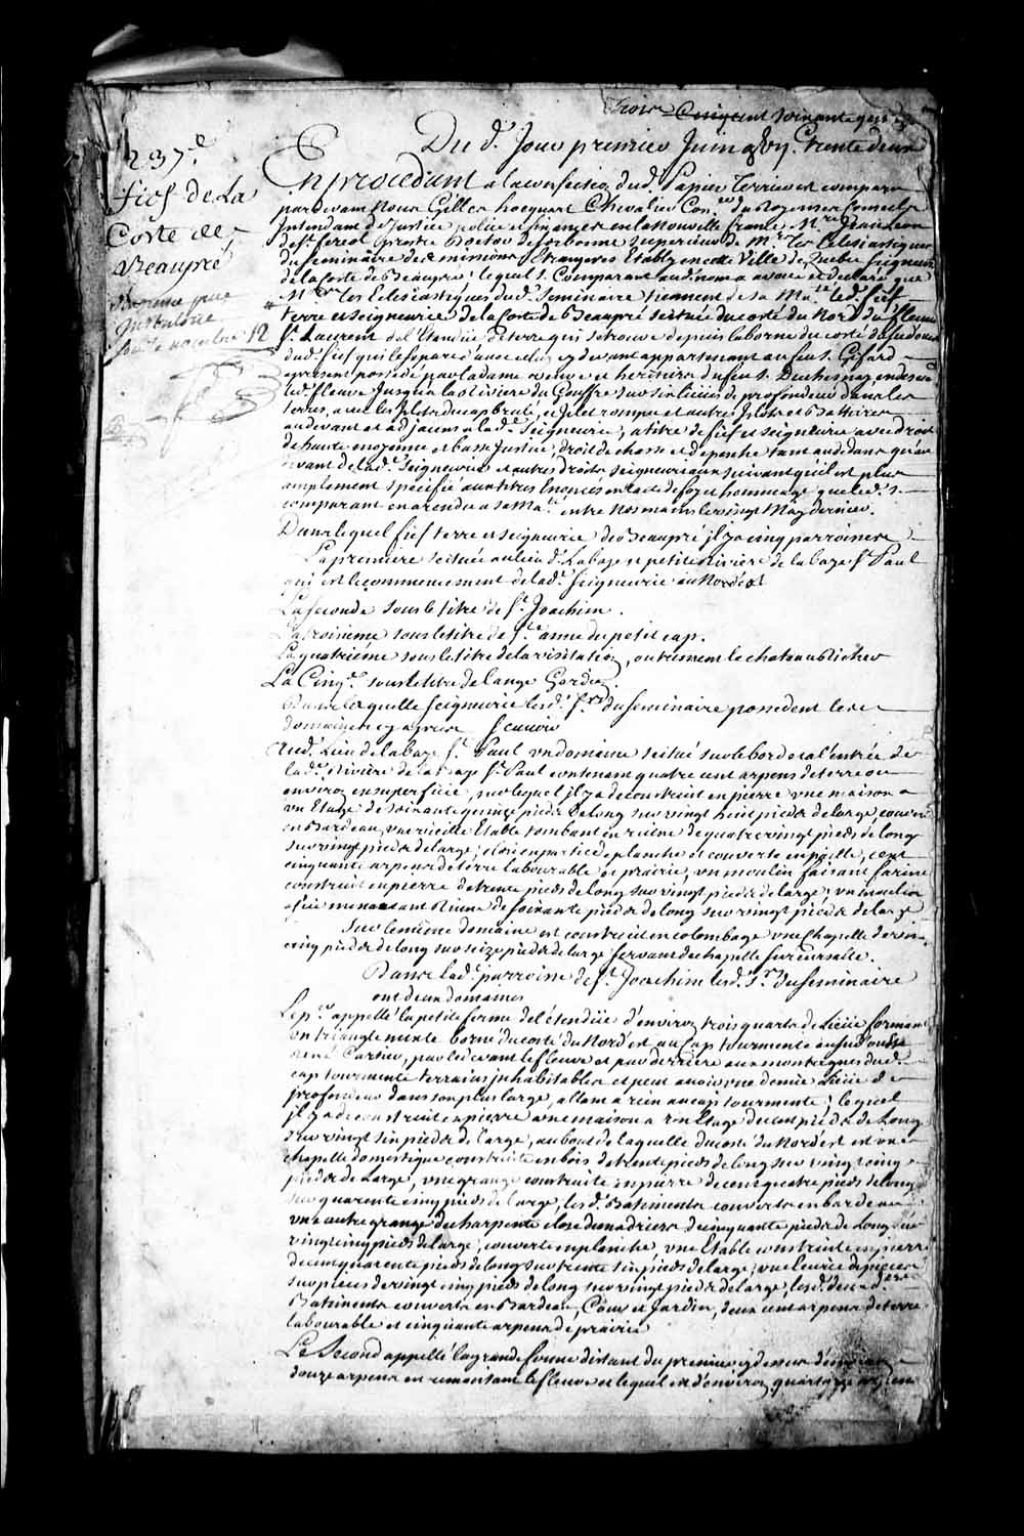 Du d. Jour premier Juin Trente deux
237.e
Fief de La
Coste de
Beaupré
En procedant a la confection dud. Papier Terrier est comparu
pardevant Nous Gilles hocquart Chevalier Con.er du Roy en ses Conseils
Intendant de Justice police et finances en la Nouvelle france M.re Jean
de St fereol Prestre Docteur de sorbonne superieur de M.rs les Eclesiastiques
du seminaire des missions Etrangeres Etably en cette Ville de Quebec Seigneurs
de la Coste de Beaupré lequel S. Comparant aud. nom a avoué et declaré que
M.rs les Eclesiastiques dud. Seminaire tiennent de sa Ma.té led. fief
terre et seigneurie de la Coste de Beaupré scituée du costé du Nord du fleuve
St Laurent de l'Etendüe de terre qui se trouve depuis la borne du costé du sudouest
dud. fief qui le separe d'avec celuy cy devant appartenant au feu S. Gifard
a present possedé par la dame veuve et heritiers du feu S. Duchesnay en descend.t
led. fleuve Jusqu'a la Riviere du Gouffre sur six lieües de profondeur dans les
terres, avec les Islets du cap brulé, et Islet rompu et autres Islets et Battures
au devant et adjacens a lad. seigneurie, a titre de fief et seigneurie avec droit
de haute moyenne et basse Justice, droit de chasse et de pesche tant au dedans qu'au
devant de lad. Seigneurie et autres droits seigneuriaux suivant qu'il est plus
amplement specifié aux titres Enoncés en l'acte de foy et hommage que led. S.
comparant en a rendu a sa Ma.té entre nos mains le vingt May dernier.
Dans lequel fief terre et seigneurie de Beaupré il y a cinq parroisses
La premiere scituée au lieu d. La baye et petite riviere de la baye St Paul
qui est le commencement de lad. Seigneurie au Nordest
La seconde sous le titre de St Joachim.
La troisieme sous le titre de S.te anne du petit cap.
La quatriéme sous le titre de la visitation, autrement le chateau Richer
La Cinq.e sous le titre de l'ange Gardien.
Dans laquelle seigneurie lesd. S.rs du seminaire possedent les
domaines cy apres Scavoir
Aud. Lieu de la baye St Paul un domaine scitué sur le bord et a l'entrée de
lad. Riviere de la baye St Paul contenant quatre cent arpens de terre ou
environ en superficie, sur lequel il y a de construit en pierre une maison a
un Etage de soixante quinze pieds de long sur vingt huit pieds de large, couverte
en Bardeau, une vieille Etable tombant en ruine de quatre vingt pieds de long
sur vingt pieds de large, close en partie de planche et couverte en paille, cent
cinquante arpens de terre labourable et prairie, un moulin faisant farine
construit en pierre de trente pieds de long sur vingt pieds de large; un moulin
a scie menaçant Ruine de soixante pieds de long sur vingt pieds de large
Sur le même domaine est construit en colombage une Chapelle de vingt
cinq pieds de long sur seize pieds de large servant de chapelle succursalle.
Dans lad. parroisse de St Joachim lesd. S.rs du Seminaire
ont deux domaines
Le p.er appellé la petite ferme de l'étendüe d'environ trois quarts de Lieüe formant
un triangle mixte borné du costé du Nord est au cap tourmente au sud ouest
, par le devant le fleuve et par derriere aux montagnes dud.
cap tourmente terrains inhabitables et peut avoir une demie Lieüe de
profondeur dans son plus large, allant a rien au cap tourmente; lequel
il y a de construit en pierre une maison a un Etage de cent pieds de Long
sur vingt six pieds de large, au bout de laquelle du costé du Nord est est une
chapelle domestique construite en bois de trente pieds de long sur vingt cinq
pieds de Large, une grange construite en pierre de cent quatre pieds de long
sur quarente cinq pieds de large, lesd. Batiments couverts en bardeau
une autre grange de charpente close de madriers de cinquante pieds de Long sur
vingt cinq pieds de large, couverte en planche, une Etable construite en pierre
de cent quarente pieds de long sur trente six pieds de large; une Ecurie de pieces
sur pieces de vingt cinq pieds de long sur vingt pieds de large, lesd. deux d.ers
Batiments couverts en Bardeau, Cour et Jardin, deux cent arpens de terre
labourable et cinquante arpens de prairie
Le Second appellé la grande ferme distant du premier cy dessus d'environ
douze arpens en remontant le fleuve et lequel est d'environ quarante arpens